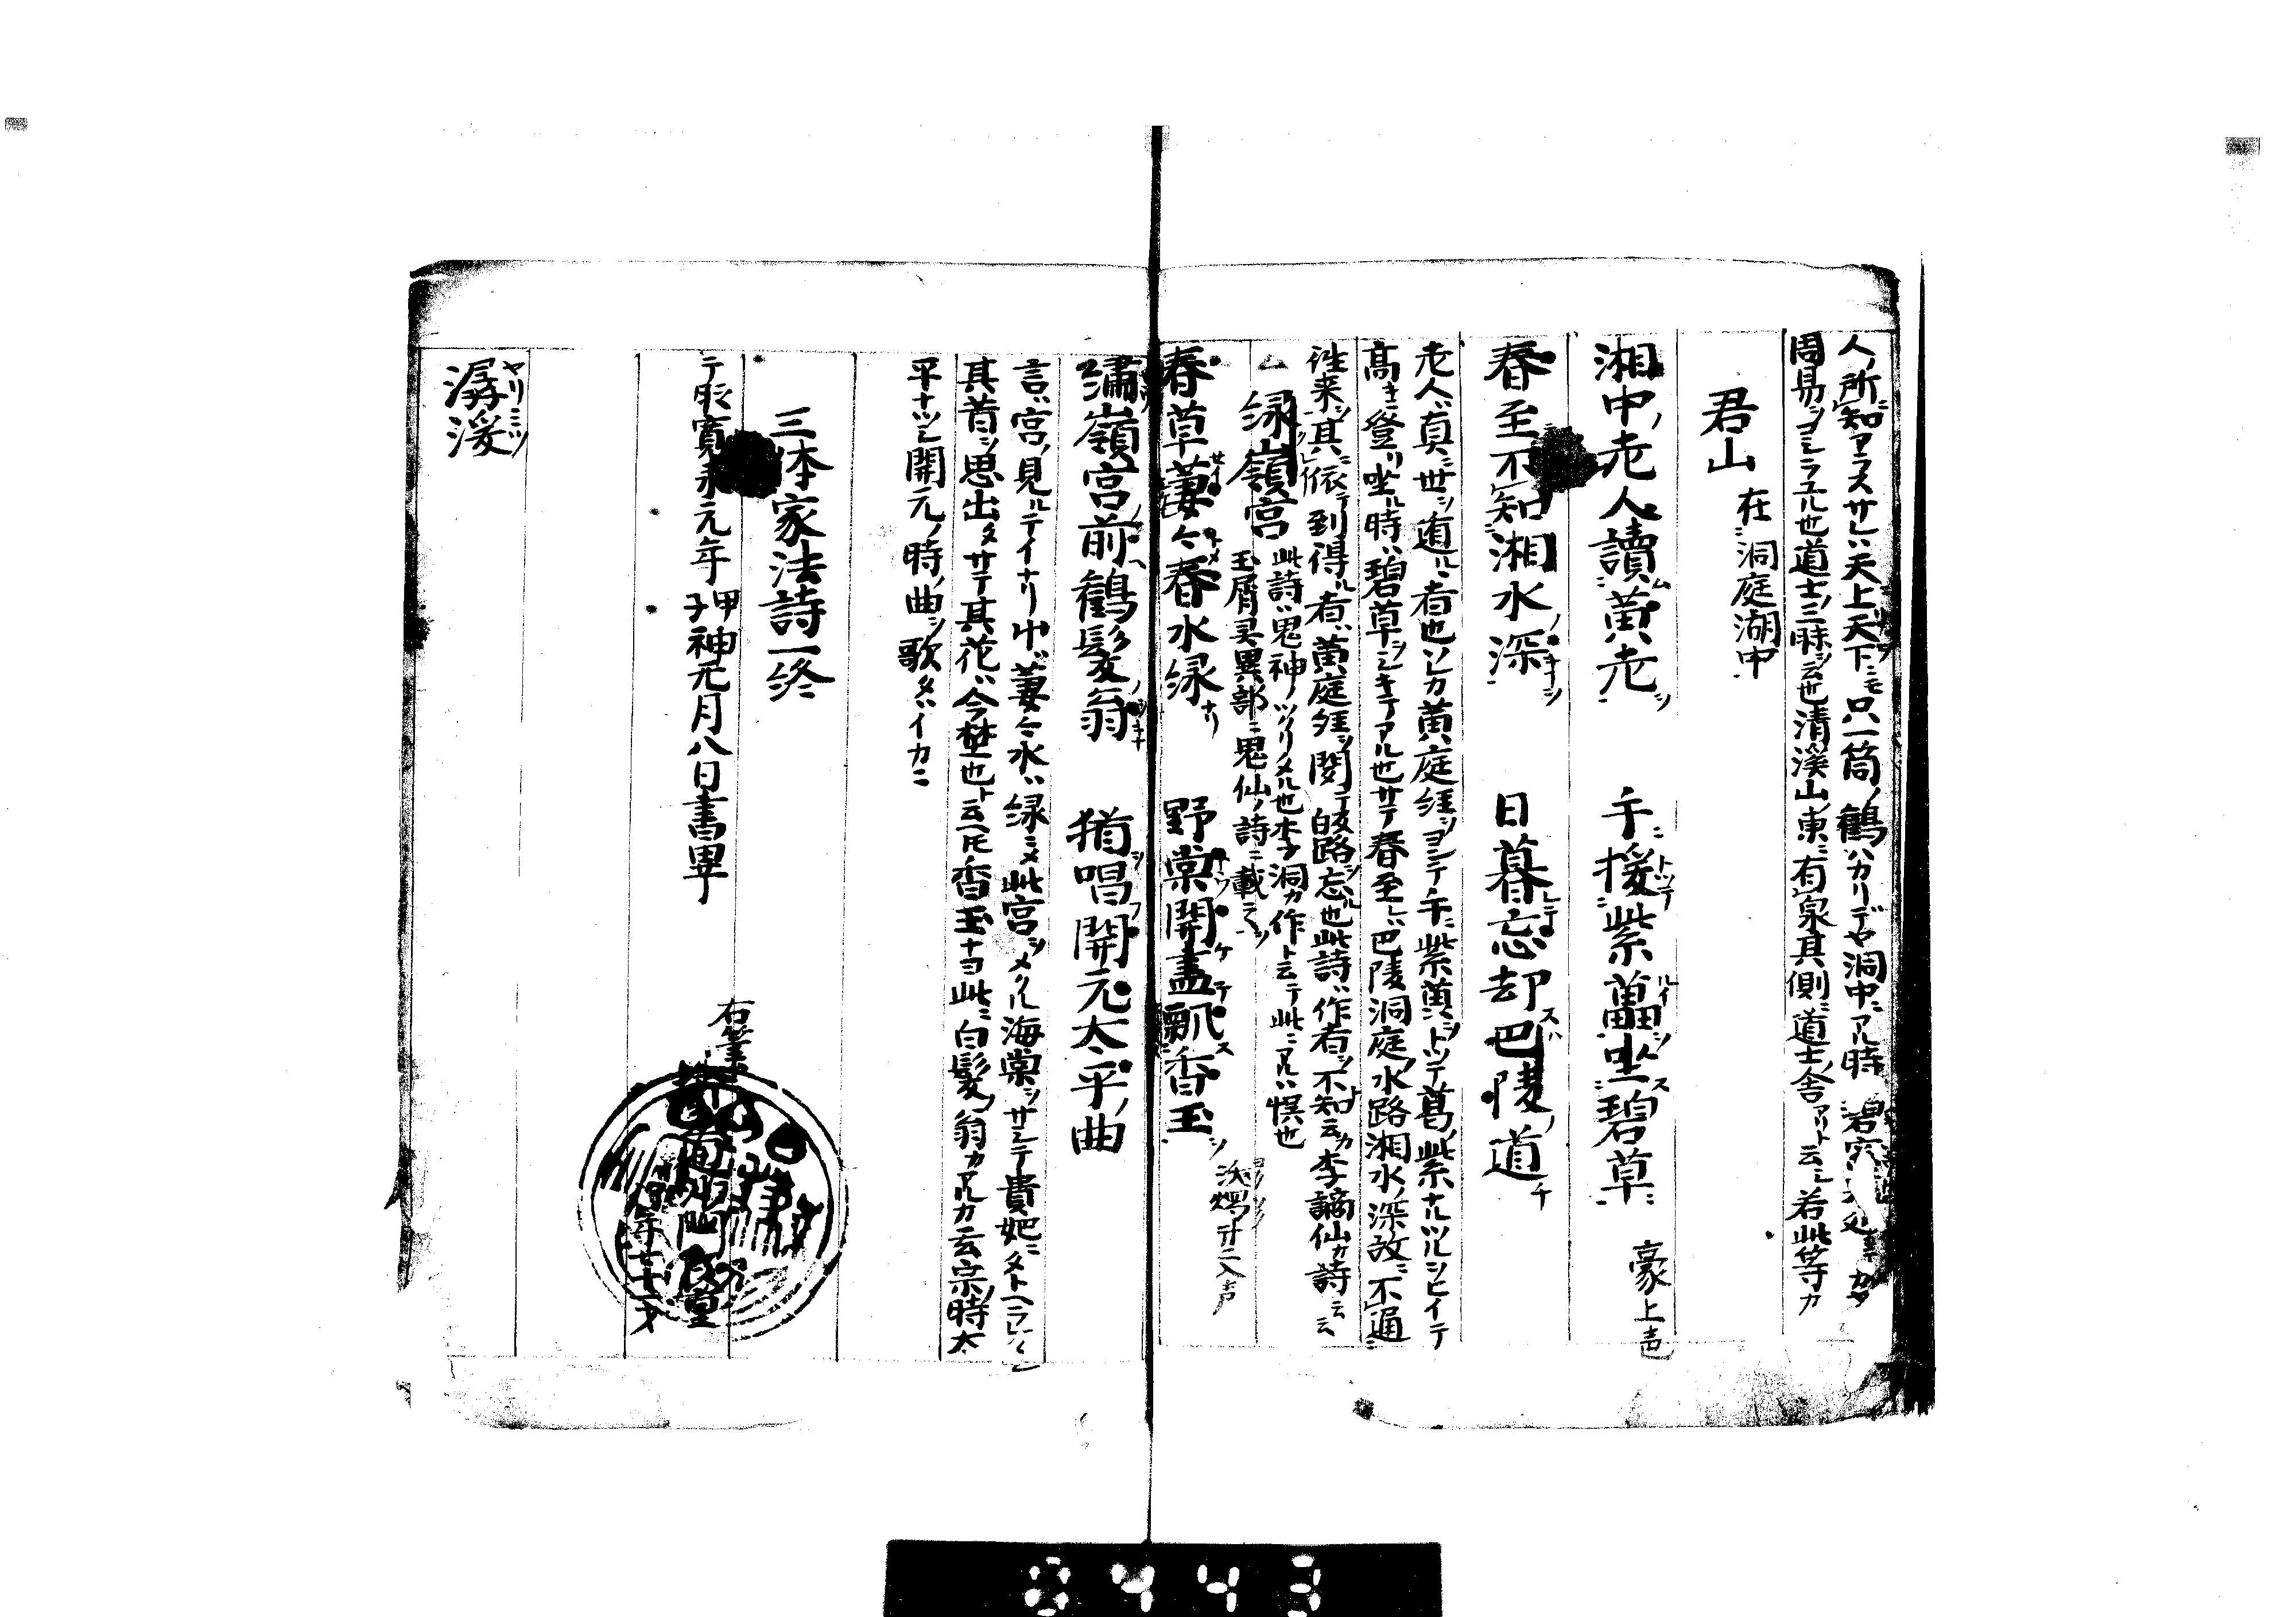 人ノ所知アラスサレハ天上天下ニモ只一箇ノ鶴ハカリデヤ洞中ニアル時
周易ヲヨミラユル也道士ノ三昧ヲ云也清溪山ノ東ニ有泉其側ニ道士ノ舎アリト云ニ若此等カ
君山 在洞庭湖中
湘中ノ老人讀黄老ヲ 手ニ援紫藟ヲ坐碧草ニ 豪上声
春至不知湘水ノ深キヲ 日暮忘却ス巴陵ノ道
老人ハ真ニ世ヲ遁ルヽ者也ソレカ黄庭経ヲヨンテ手ニ紫藟ヲトツテ葛ノ紫ナルツルヲヒイテ
高キニ登リ坐ル時ハ碧草ヲシキテアル也サテ春至レハ巴陵洞庭ノ水路湘水ノ深故ニ不通
往来ヲ其ニ依テ到得ル者ハ黄庭経ヲ閲テ故路ヲ忘也此詩ハ作者ヲ不知ト云カ李謫仙カ詩ト云云
緑嶺宮 此詩ハ鬼神ノツクリメル也李洞カ作ト云テ此ニアルハ悞也
玉屑灵異部ニ鬼仙ノ詩ニ載ラ
春草萋々春水緑ナリ 野棠開盡飄香玉ヲ 入声
繡嶺宮前鶴髮ノ翁 猶唱開元太平ノ曲
言ハ宮ノ見ルテイナリ中ハ萋々水ハ緑ニメ此宮ヲメクル海棠ヲサシテ貴妃ニタトヘラレ
其昔ヲ思出タサテ其花ハ今埜也ト云ヘ𪜈香玉ナヨ此ニ白髮ノ翁カアルカ云宗ノ時太
平ナツシ開元ノ時ノ曲ヲ歌タハイカニ
三体家法詩一終
于時寛永元年甲子神无月八日書畢
右筆
年七十一才
潺湲